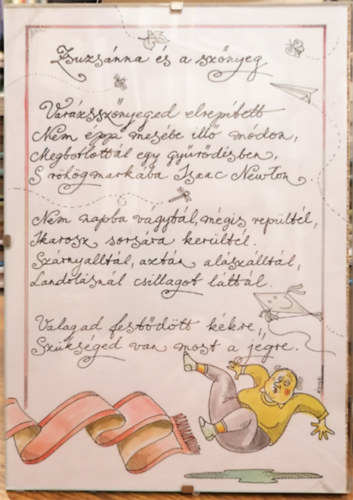 Zsuzsánna és a szőnyeg
Varázsszőnyeged elrepített
Nem épp mesébe illő módon,
Megbotlottál egy gyűrődésben,
S röhög markába Isaac Newton.
Nem napba vágytál, mégis repültél,
Ikarosz sorsára kerültél.
Szárnyalltál, aztán alászálltál,
Landolásnál csillagot láttál.
Valagad festődött kékre,
Szükséged van most a jégre.